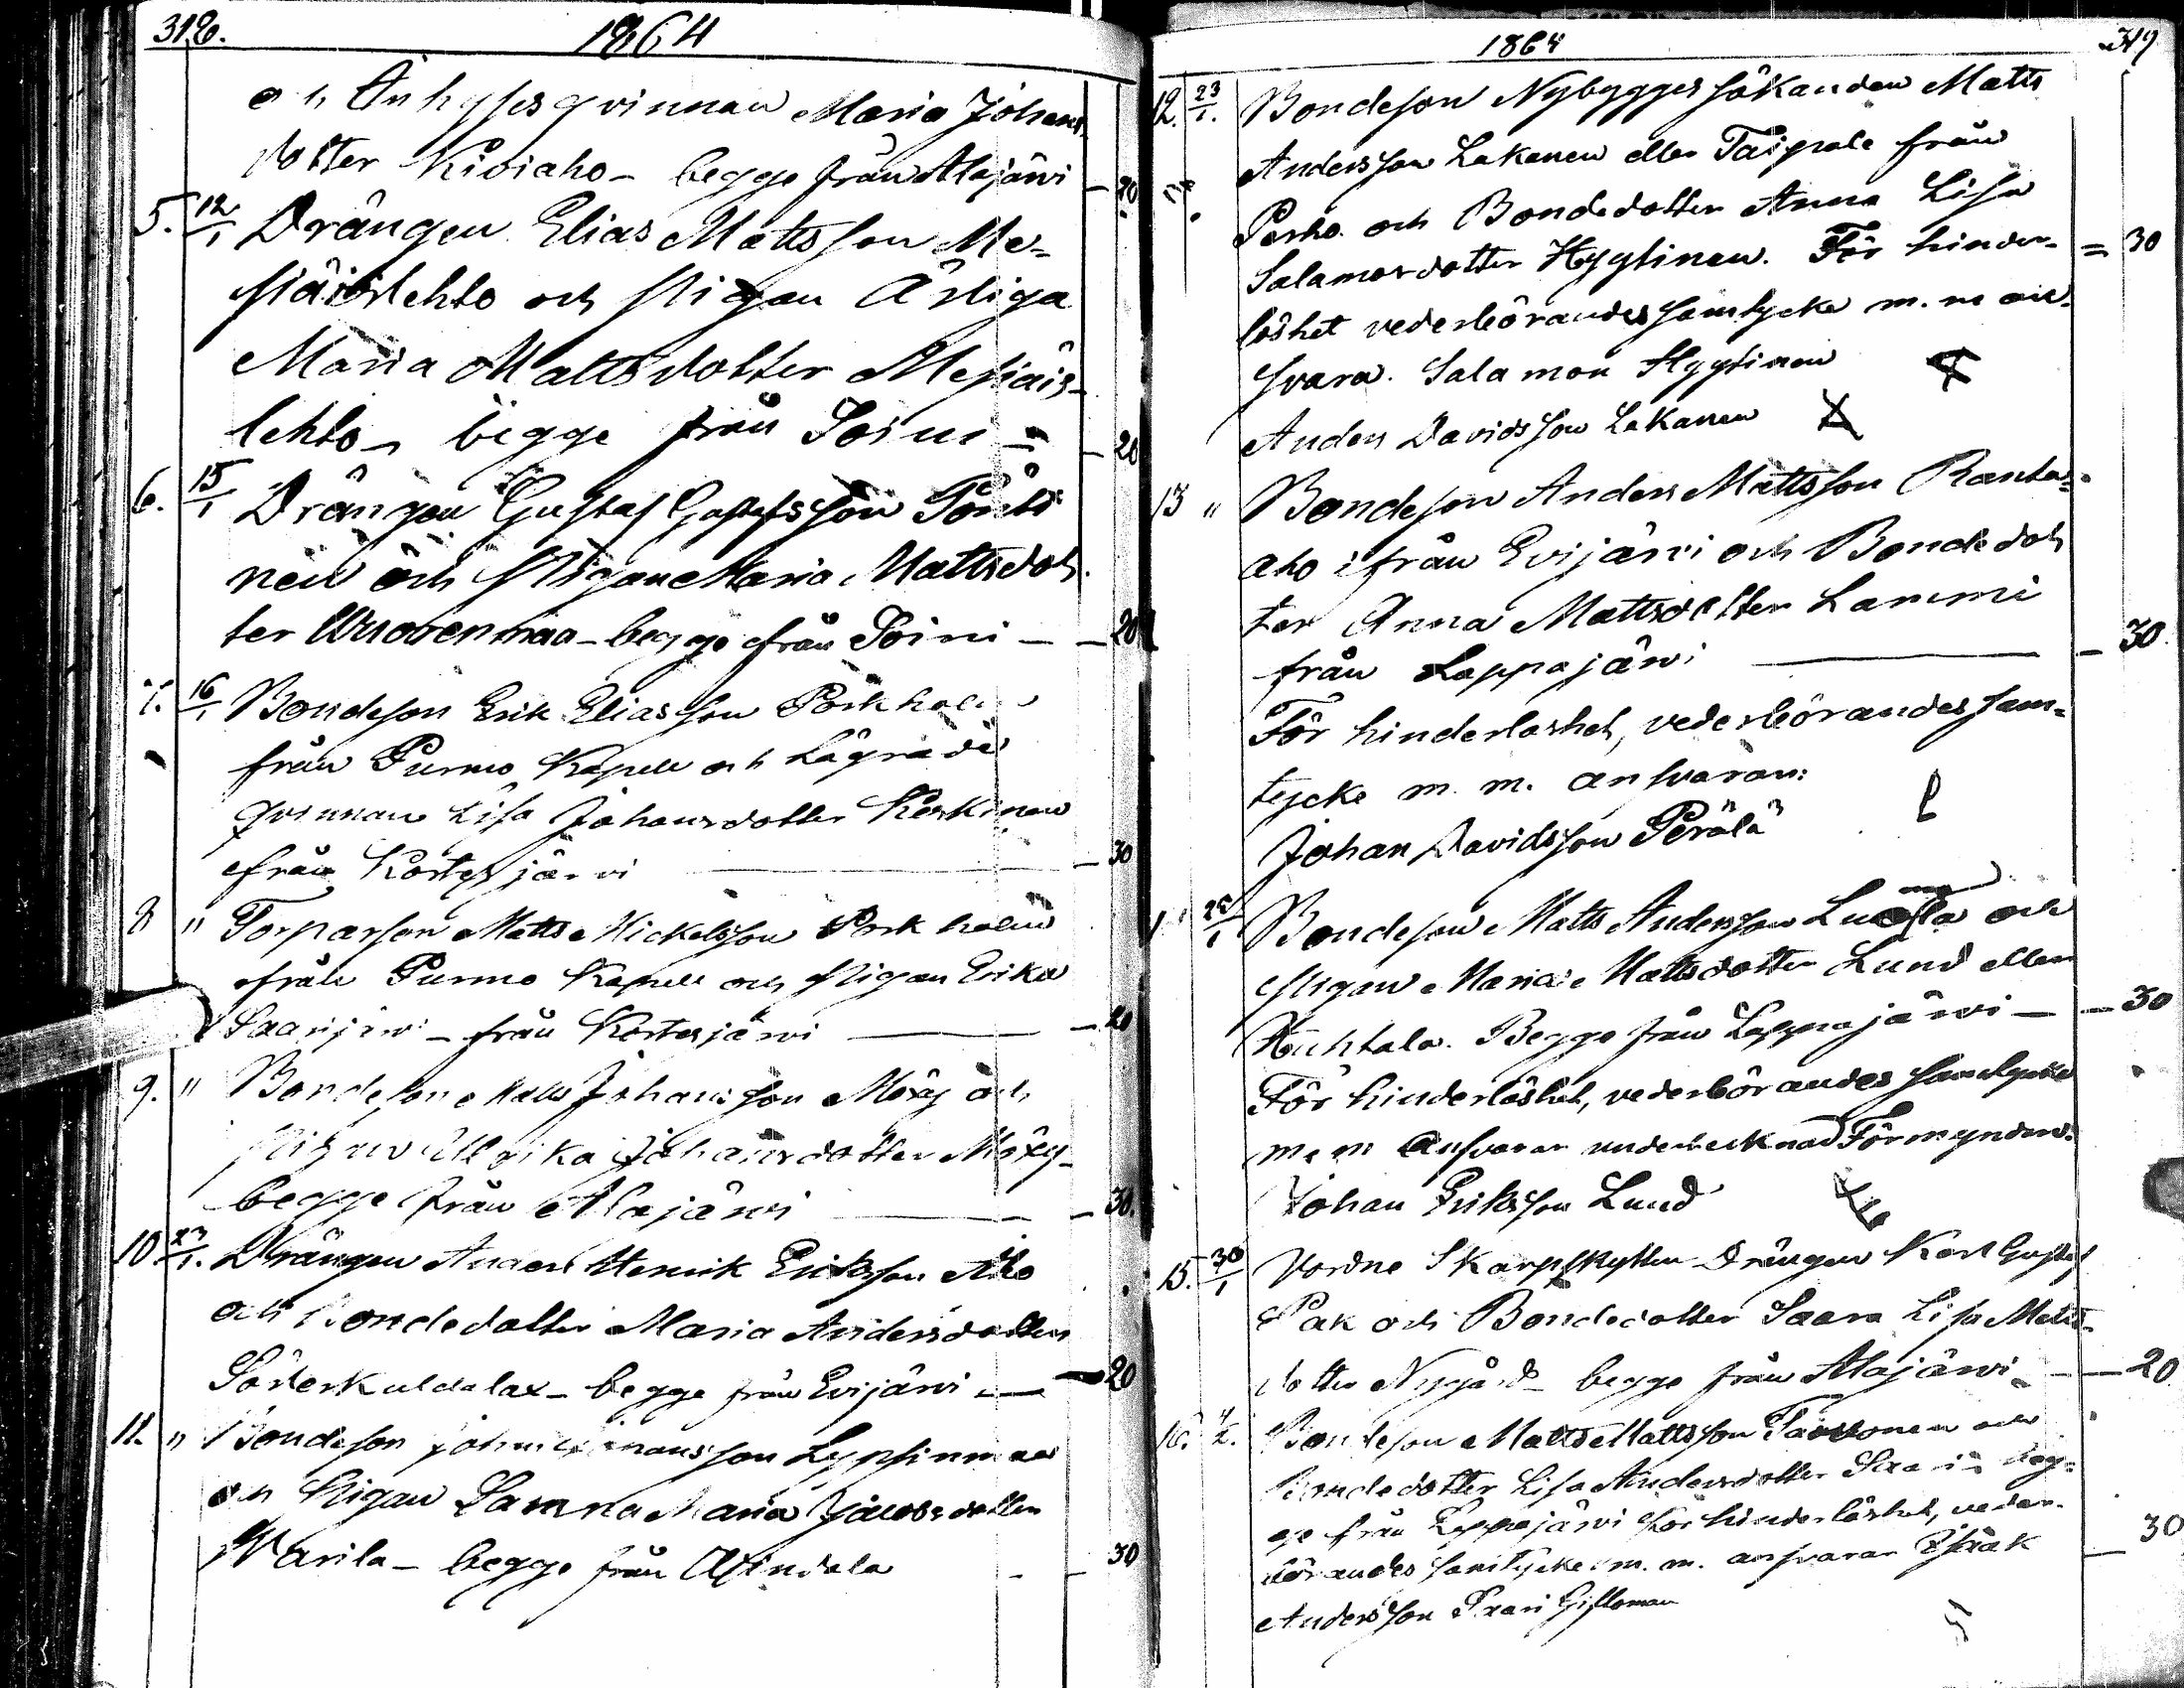 318.
1864
och Inhyses qvinnan Maria Johans-
dotter Kiviaho - begge från Alajärvi - 20
5. 12/1 Drängen Elias Mattsson Me-
siäislehto och Pigan Ärliga
Maria Mattsdotter Mesiäis-
lehto - begge från Soini - 20
6. 15/1 Drängen Gustaf Gustafsson Pönti
nen och Pigan Maria Mattsdot-
ter Wuorenmaa - begge från Soini - - 20
7. 16/1 Bondeson Erik Eliasson Porkholm
från Purmo Kapell och Lägrade
qvinnan Lisa Johansdotter Keskinen
från Kortesjärvi - 30
8 " Torparson Matts Mickelsson Porkholm
från Purmo Kapell och Pigan Erika
Saarijärvi - från Kortesjärvi - 20
9. " Bondeson Matts Johansson Möxy och
Pigan Ulrika Johansdotter Möxy -
begge från Alajärvi - 30.
10 23/1. Drängen Anders Henrik Eriksson Aho
och Bondedotter Maria Andersdotter
Söderkuldalax - begge från Evijärvi - 20
11. " Bondeson Johan Johansson Lypsinmaa
och Pigan Sanna Maria Jacobsdotter
Warila - begge från Windala - 30
1864
319
12. 23/1. Bondeson Nybyggessökanden Matts
Andersson Lakanen eller Taipale från
Perho och Bondedotter Anna Lisa
Salamonsdotter Hyytinen. För hinder- = 30
löshet vederbörandes samtycke m. m an-
svara. Salamon Hyytinen
Anders Davidsson Lakanen
13 " Bondeson Anders Mattsson Ranta-
aho ifrån Evijärvi och Bondedot
ter Anna Mattsdotter Lammi
från Lappajärvi - 30.
För hinderlöshet, vederbörandes sam-
tycke m. m. ansvaran:
Johan Davidsson Perälä
1 /1 Bondeson Matts Andersson och
Pigan Maria Mattsdotter Lund eller
Huhtala. Begge från Lappajärvi - - 30
För hinderlöshet, vederbörandes samtycke
m. m ansvarar undertecknad Förmyndare
Johan Eriksson Lund
15. 30/1 Vordne Skarpskytten Drängen Karl Gustaf
Pak och Bondedotter Saara Lisa Matts-
dotter Nygård - begge från Alajärvi - 20
16. 4/2. Bondeson Matts Mattsson och
Bondedotter Lisa Andersdotter Saari beg-
ge från Lappajärvi För hinderlöshet, veder-
börandes samtycke m. m. ansvarar Isaak - 30
Andersson Saari Giftoman